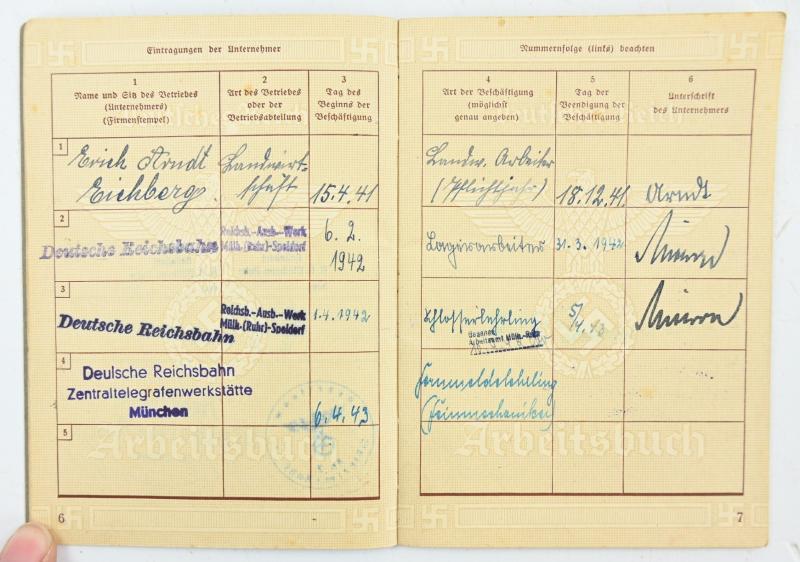 Eintragungen der Unternehmer
1
Name und Sitz des Betriebes
(Unternehmers)
(Firmenstempel)
2
Art des Betriebes
oder der
Betriebsabteilung
3
Tag des
Beginns der
Beschäftigung
1
Erich Arndt
Eichberg.
Landwirt-
schaft
15.4.41
2
Deutsche Reichsbahn
Reichsb.-Ausb.-Werk
Mülh.-(Ruhr)-Speldorf
6. 2.
1942
3
Deutsche Reichsbahn
Reichsb.-Ausb.-Werk
Mülh.-(Ruhr)-Speldorf
1.4.1942
4
Deutsche Reichsbahn
Zentraltelegrafenwerkstätte
München
6.4.43
5
Arbeitsbuch
6
Nummernfolge (links) beachten
4
Art der Beschäftigung
(möglichst
genau angeben)
5
Tag der
Beendigung der
Beschäftigung
6
Unterschrift
des Unternehmers
Landw. Arbeiter
(Pflichtjahr)
18.12.41
Arndt
Lagerarbeiter
31.3.1942
Schlosserlehrling
5/4.43
Gesehen
Arbeitsamt Mülh.-Ruhr
Fernmeldelehrling
(Feinmechaniker)
Arbeitsbuch
7